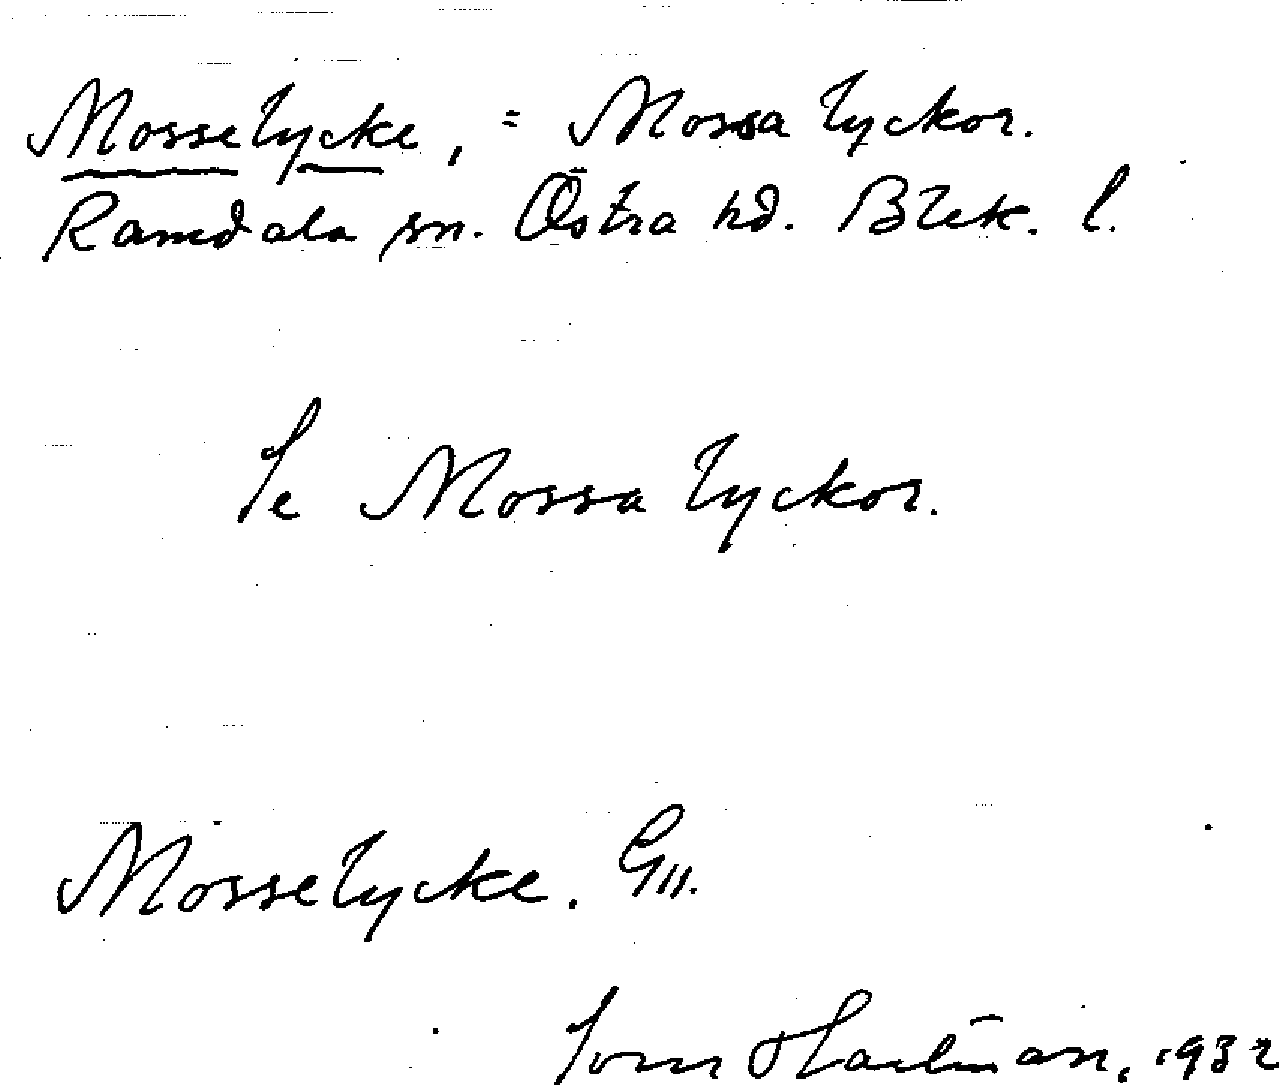 Mosselycke, = Mossa lyckor.
Ramdala sn. Östra hd. Blek. l.
Se Mossa lyckor.
Mosselycke.
1932